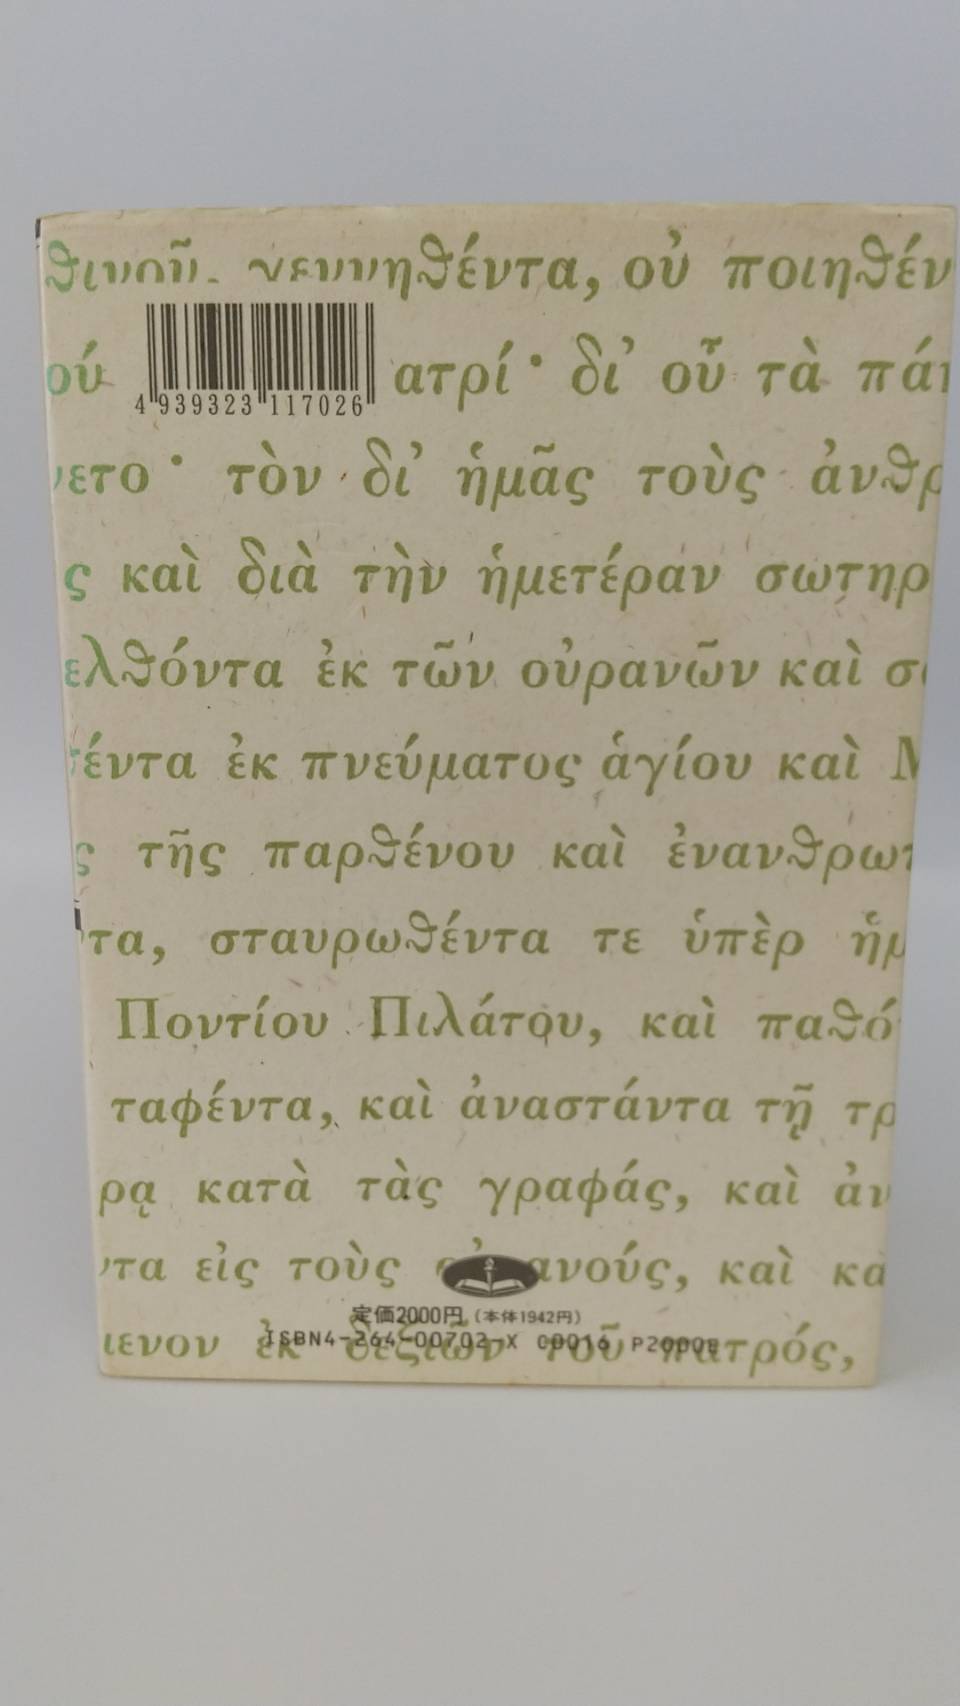 θινοῦ, γεννηθέντα, οὐ ποιηθέν
ού ατρί· δι’ οὗ τὰ πάν
4 939323 117026
νετο· τὸν δι’ ἡμᾶς τοὺς ἀνθρ
ς καὶ διὰ τὴν ἡμετέραν σωτηρ
ελθόντα ἐκ τῶν οὐρανῶν καὶ σα
έντα ἐκ πνεύματος ἁγίου καὶ Μ
ς τῆς παρθένου καὶ ἐνανθρωπ
ντα, σταυρωθέντα τε ὑπὲρ ἡμ
Ποντίου Πιλάτου, καὶ παθό
ταφέντα, καὶ ἀναστάντα τῇ τρ
ρᾳ κατὰ τὰς γραφάς, καὶ ἀν
ντα εἰς τοὺς οὐρανούς, καὶ κα
定価2000円 (本体1942円)
ISBN4-264-00702-X C0016 P2000E
μενον ἐκ δεξιῶν τοῦ πατρός,